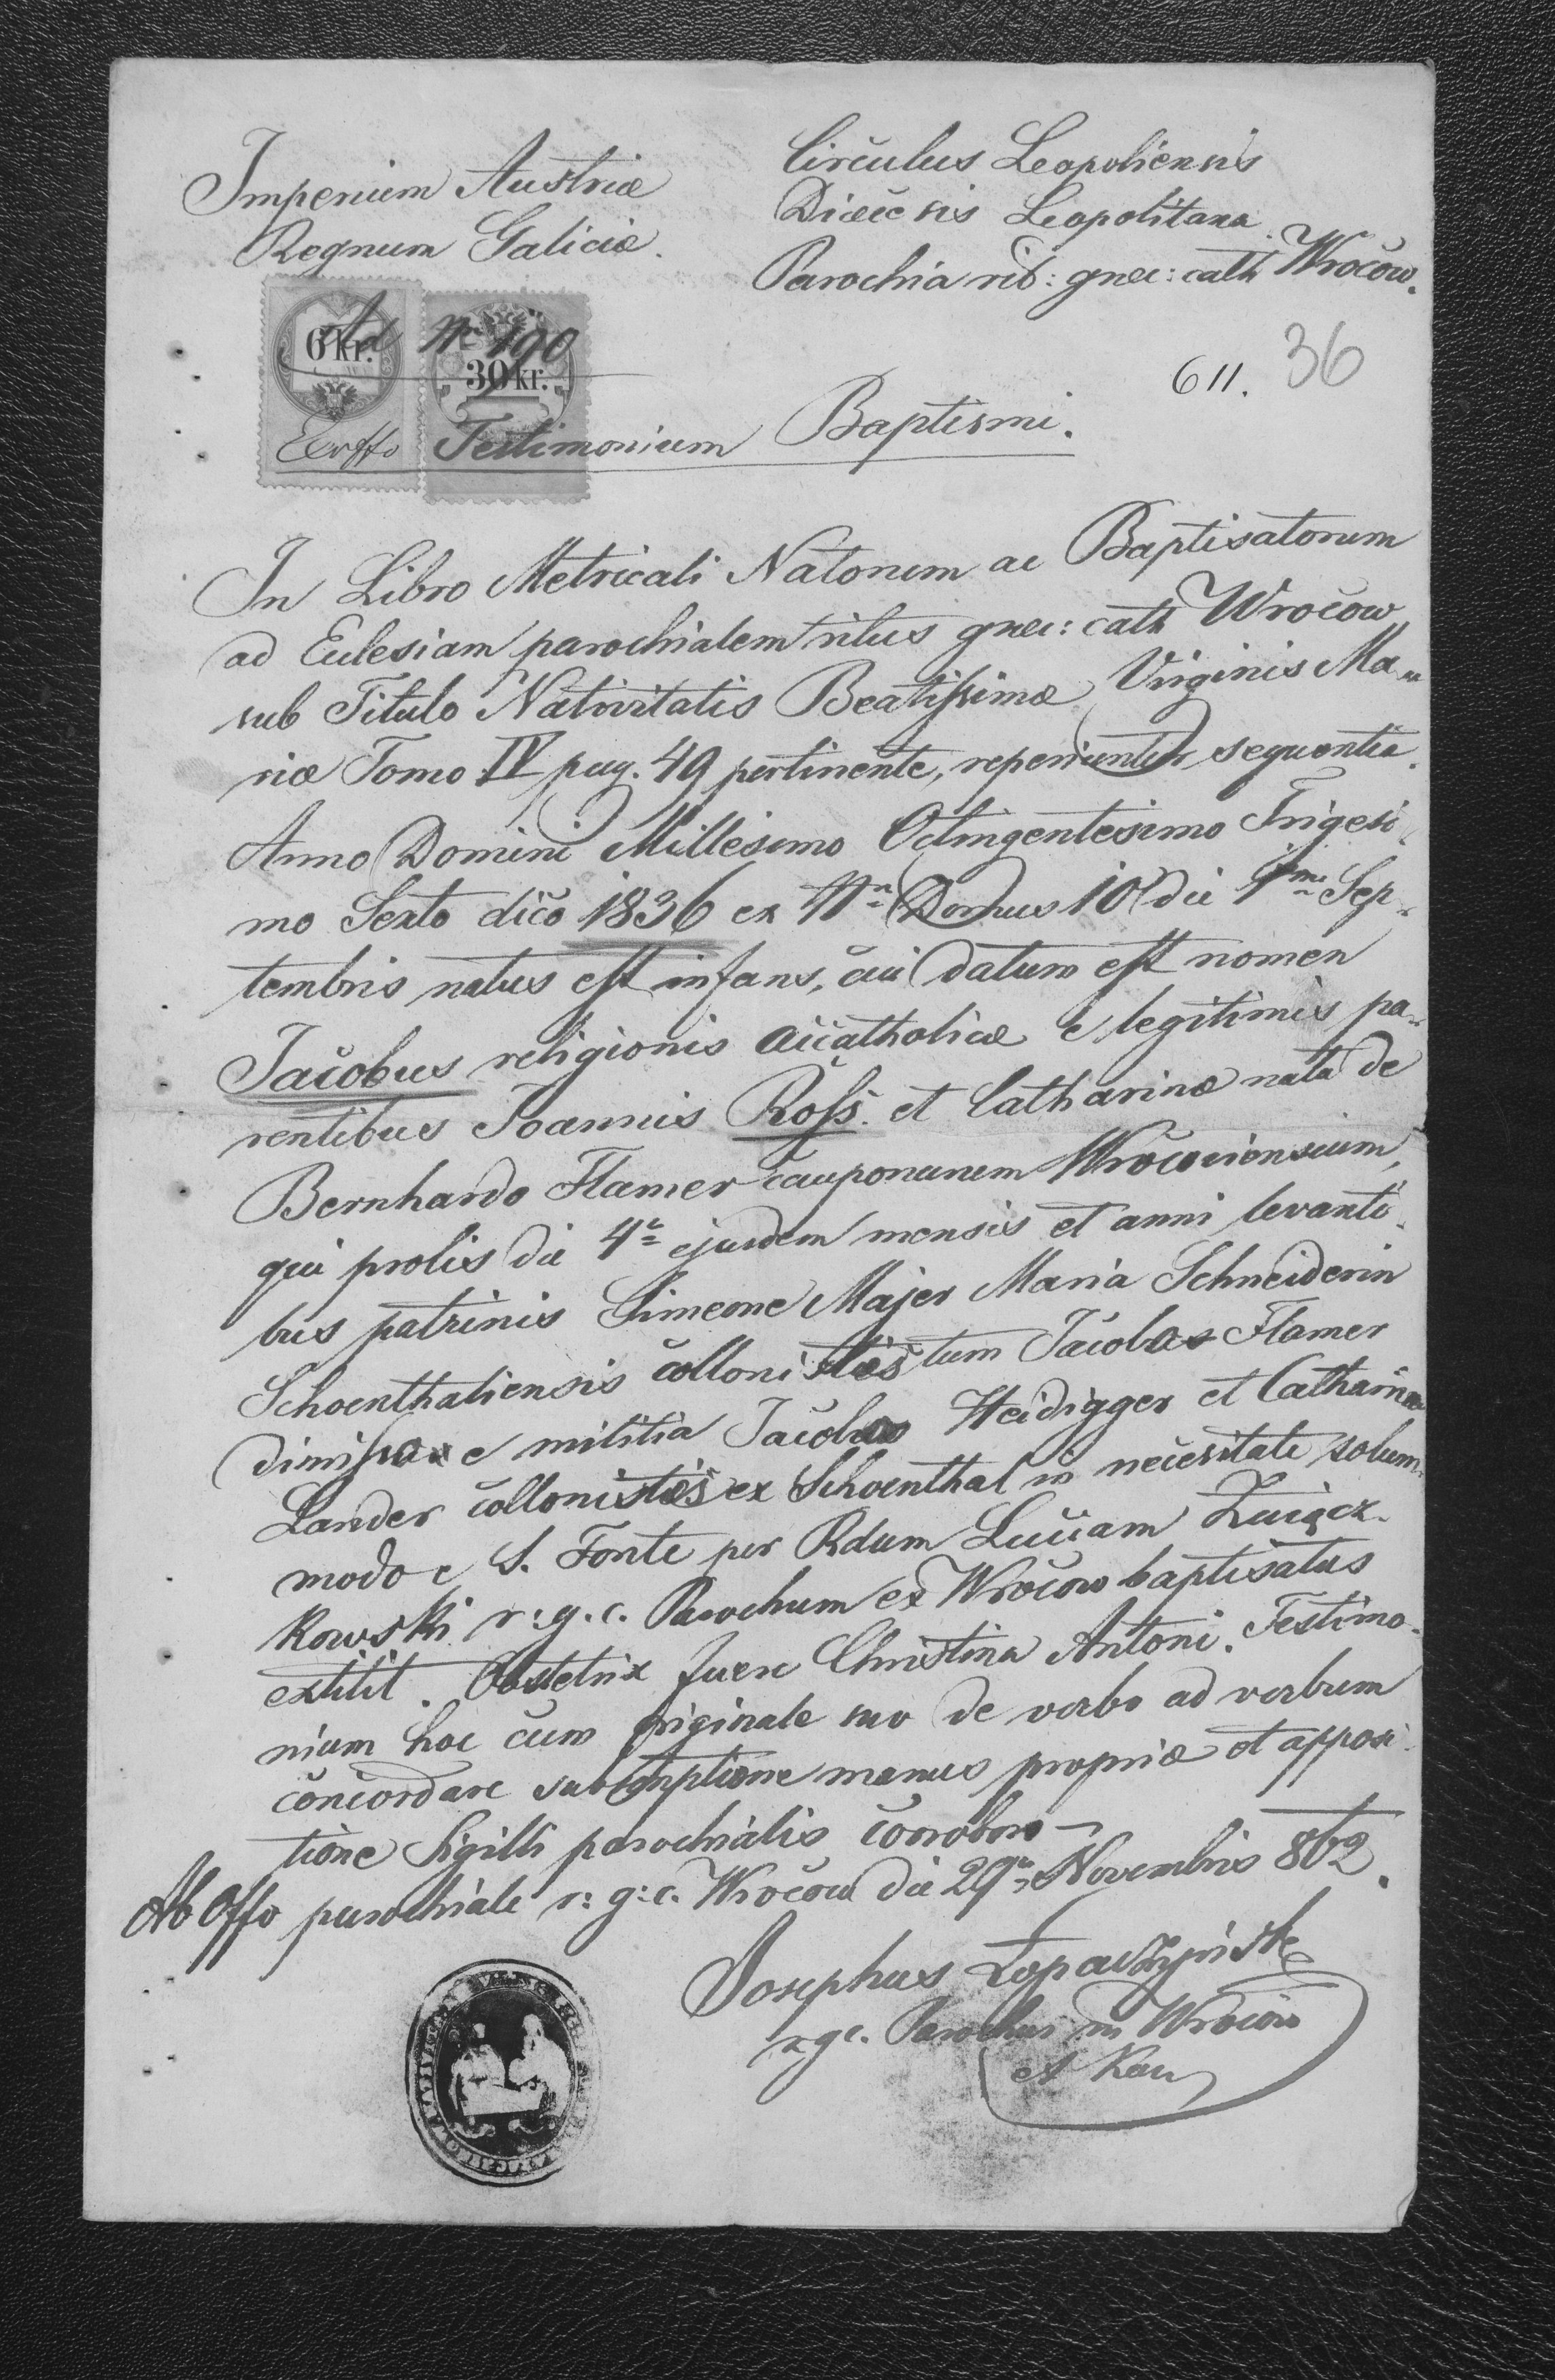 Imperium Austriæ
Regnum Galiciæ.
Circulus Leopoliensis
Diæcesis Leopolitana
Parochia rit: græc: cath Wrocow.
6 kr.
30 kr.
Ad Nr 190
611. 36
Exoffo Testimonium Baptismi.
In Libro Metricali Natorum ac Baptisatorum
ad Eclesiam parochialem ritus græc: cath Wrocow
sub Titulo Nativitatis Beatissimæ Virginis Ma
riæ Tomo IV pag. 49 pertinente, reperiuntur sequentia.
Anno Domini Millesimo Octingentesimo Trigesi
mo Sexto dico 1836 ex Nro Domus 10 die 1ma Sep
tembris natus est infans, cui datum est nomen
Jacobus religionis accatholicæ e legitimis pa
rentibus Joannis Roß. et Catharinæ nata de
Bernhardo Flamer cauponunem Wrocoviensium,
qui prolis die 4a ejusdem mensis et anni levanti
bus patrinis Simeone Majer Maria Schneiderin
Schoenthaliensis collonistis tum Jacobo Flamer
dimisso e militia Jacobo Heidigger et Catharina
Lander collonistis ex Schoenthal in necesitate solum
modo e S. Fonte per Rdum Luciam
kowski r: g. c. Parochum ex Wrocow baptisatus
extitit. Obstetrix fuere Christina Antoni. Testimo
nium hoc cum originale suo de verbo ad verbum
concordare subscriptione manus propriæ et apposi
tione Sigilli parochialis corroboro
Ab Offo parochiale r: g: c. Wrocow die 29a Novembris 862.
Josephus
r g c. Parochus in Wrocow